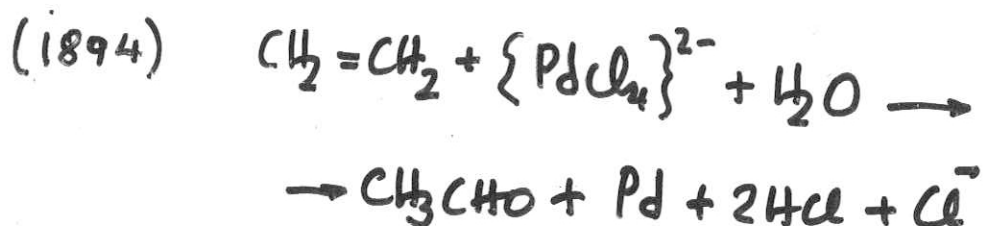 (i894) CH₂=CH₂ + {PdCl₄}²⁻ + H₂O ⟶
→ CH₃CHO + Pd + 2HCl + Cl⁻